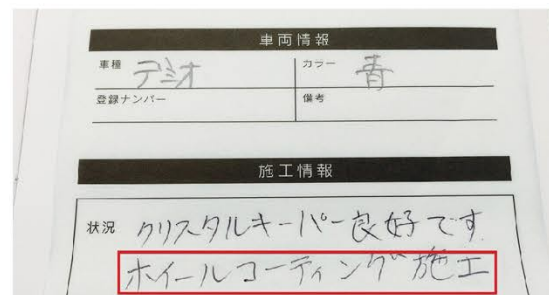 車両情報
車種 デミオ カラー 青
登録ナンバー 備考
施工情報
状況 クリスタルキーパー良好です
ホイールコーティング施工